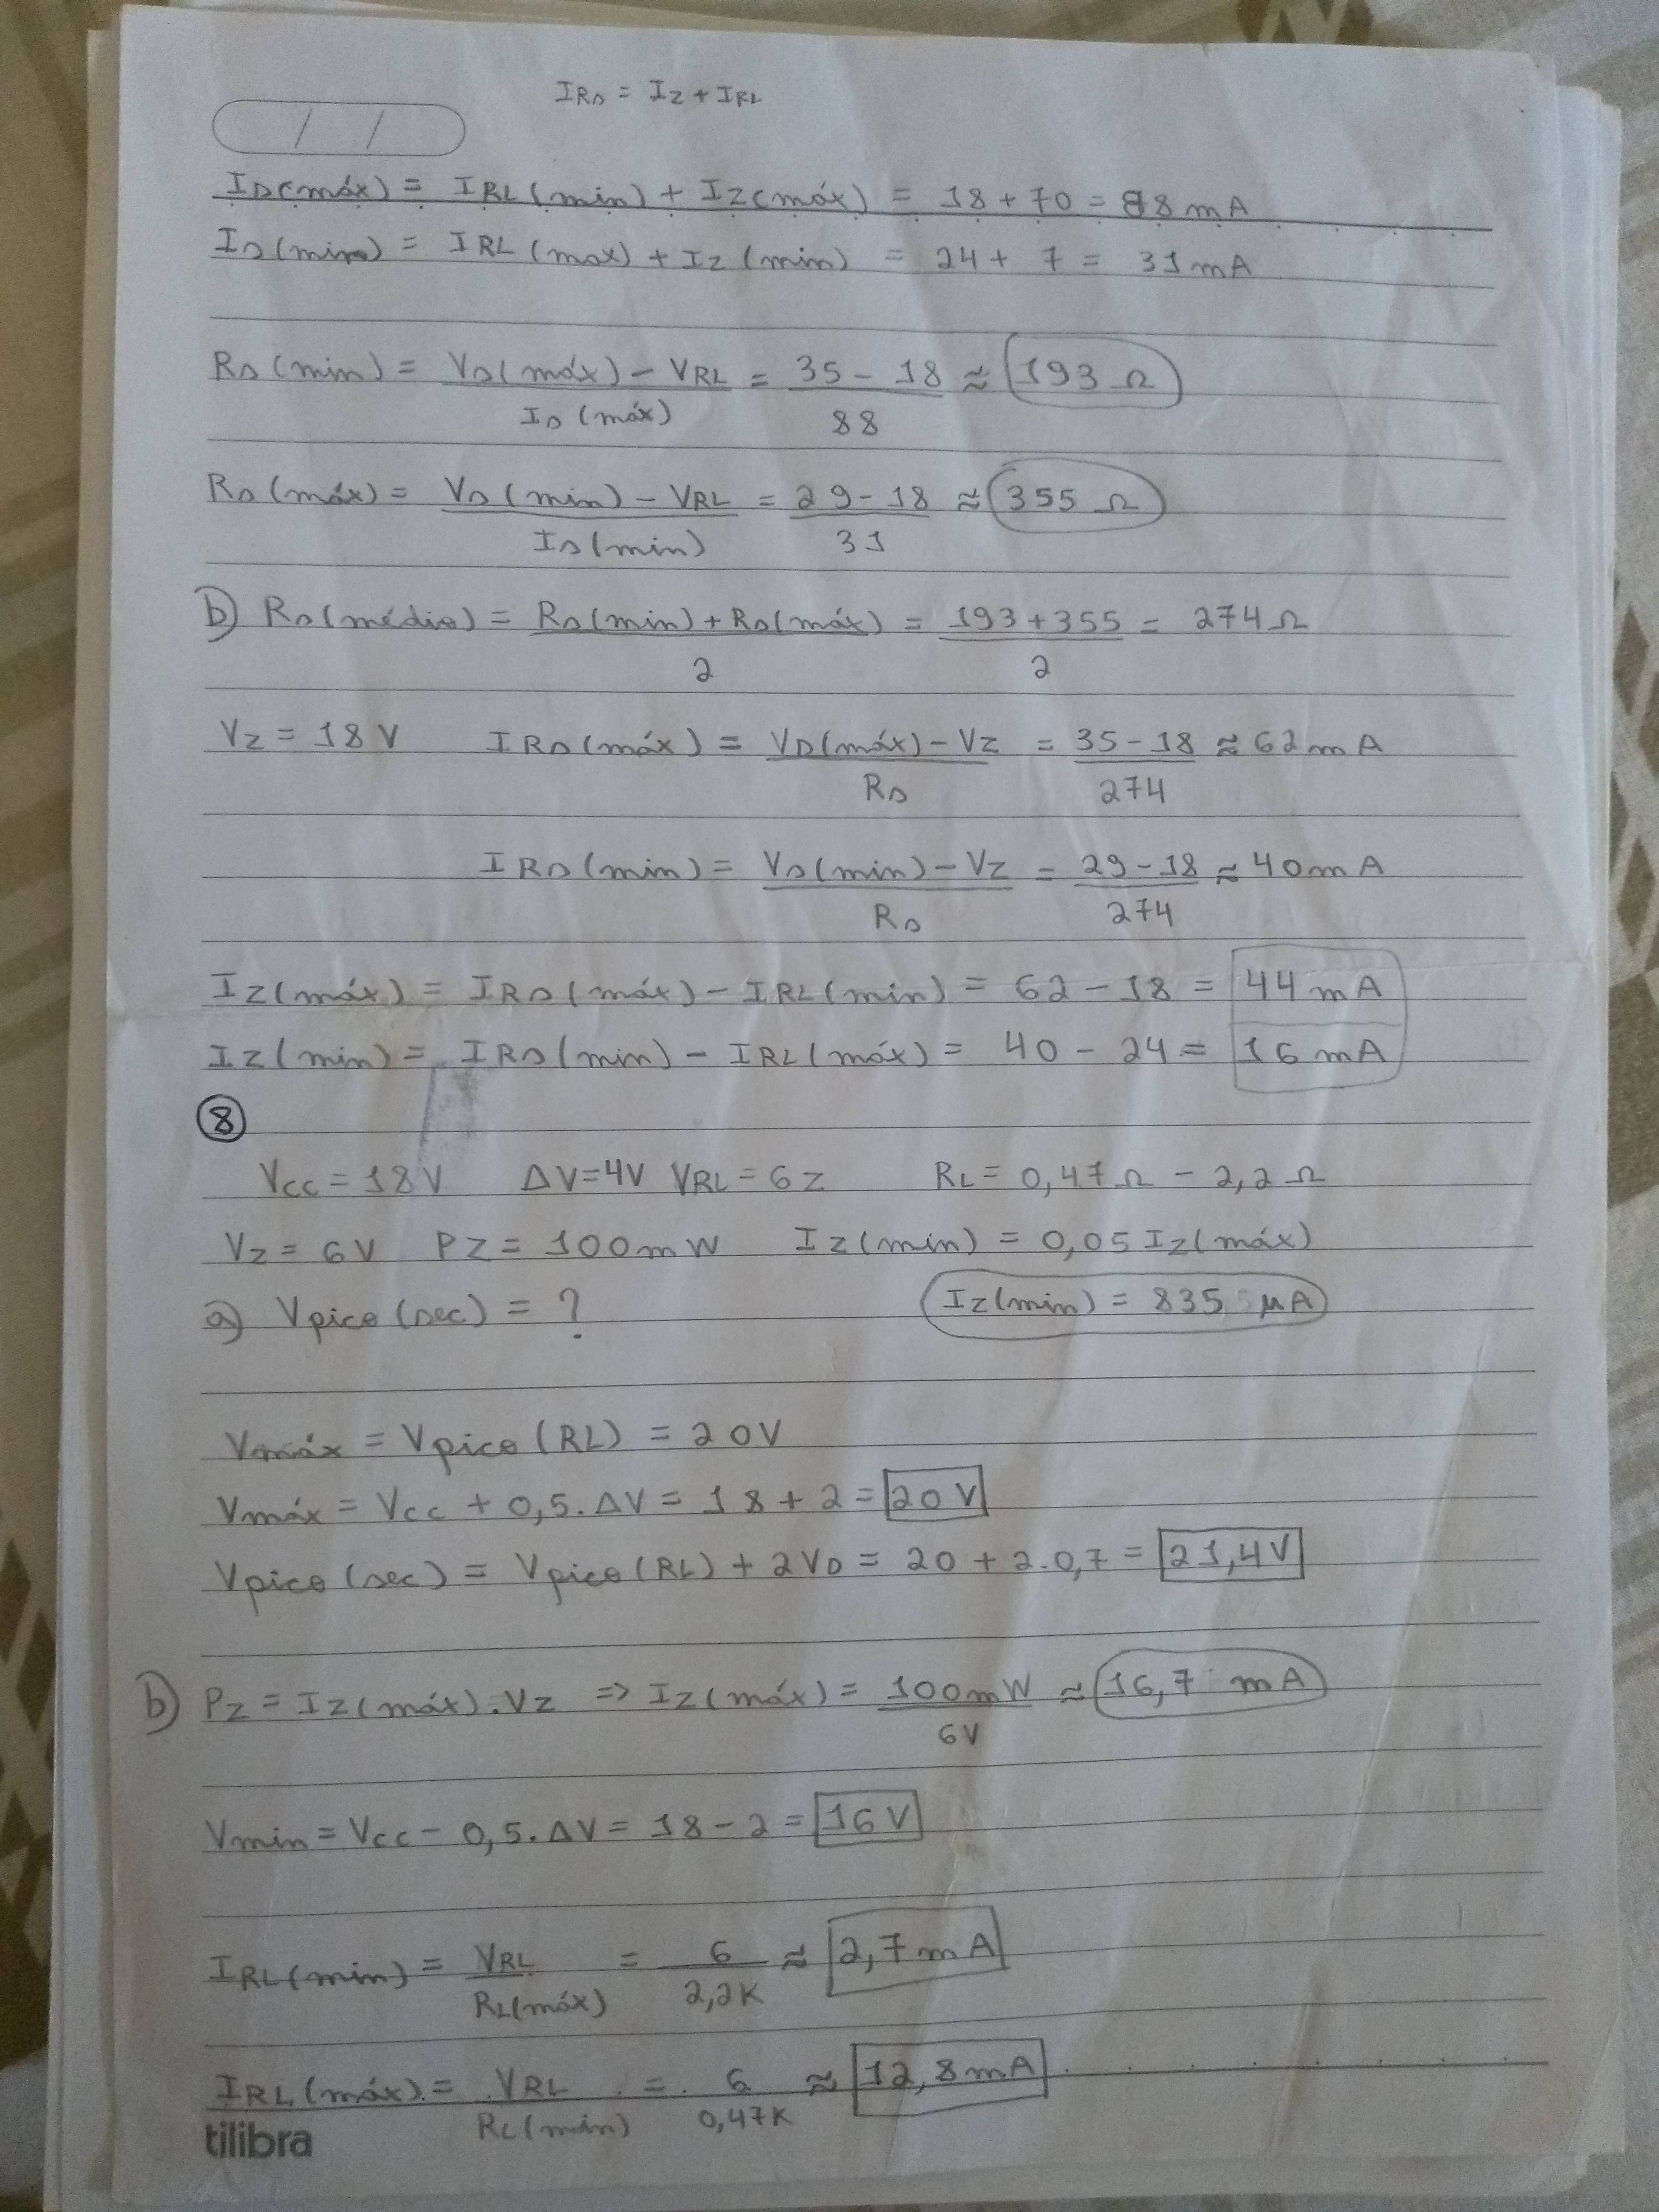 IRS = IZ + IRL
/ /
IS(máx) = IRL(min) + IZ(máx) = 18 + 70 = 88 mA
IS(min) = IRL(max) + IZ(min) = 24 + 7 = 31 mA
RS(min) = VS(máx) - VRL / IS(máx) = 35 - 18 / 88 ≈ 193 Ω
RS(máx) = VS(min) - VRL / IS(min) = 29 - 18 / 31 ≈ 355 Ω
b) RS(médio) = RS(min) + RS(máx) / 2 = 193 + 355 / 2 = 274 Ω
VZ = 18 V IRS(máx) = VS(máx) - VZ / RS = 35 - 18 / 274 ≈ 62 mA
IRS(min) = VS(min) - VZ / RS = 29 - 18 / 274 ≈ 40 mA
IZ(máx) = IRS(máx) - IRL(min) = 62 - 18 = 44 mA
IZ(min) = IRS(min) - IRL(máx) = 40 - 24 = 16 mA
8
VCC = 18V ΔV = 4V VRL = 6Z RL = 0,47Ω - 2,2Ω
VZ = 6V PZ = 100mW IZ(min) = 0,05 IZ(máx)
a) Vpico(sec) = ? IZ(min) = 835 μA
Vmáx = Vpico(RL) = 20V
Vmáx = VCC + 0,5.ΔV = 18 + 2 = 20 V
Vpico(sec) = Vpico(RL) + 2VD = 20 + 2.0,7 = 21,4V
b) PZ = IZ(máx).VZ => IZ(máx) = 100mW / 6V ≈ 16,7 mA
Vmin = VCC - 0,5.ΔV = 18 - 2 = 16 V
IRL(min) = VRL / RL(máx) = 6 / 2,2K ≈ 2,7 mA
IRL(máx) = VRL / RL(min) = 6 / 0,47K ≈ 12,8 mA
tilibra